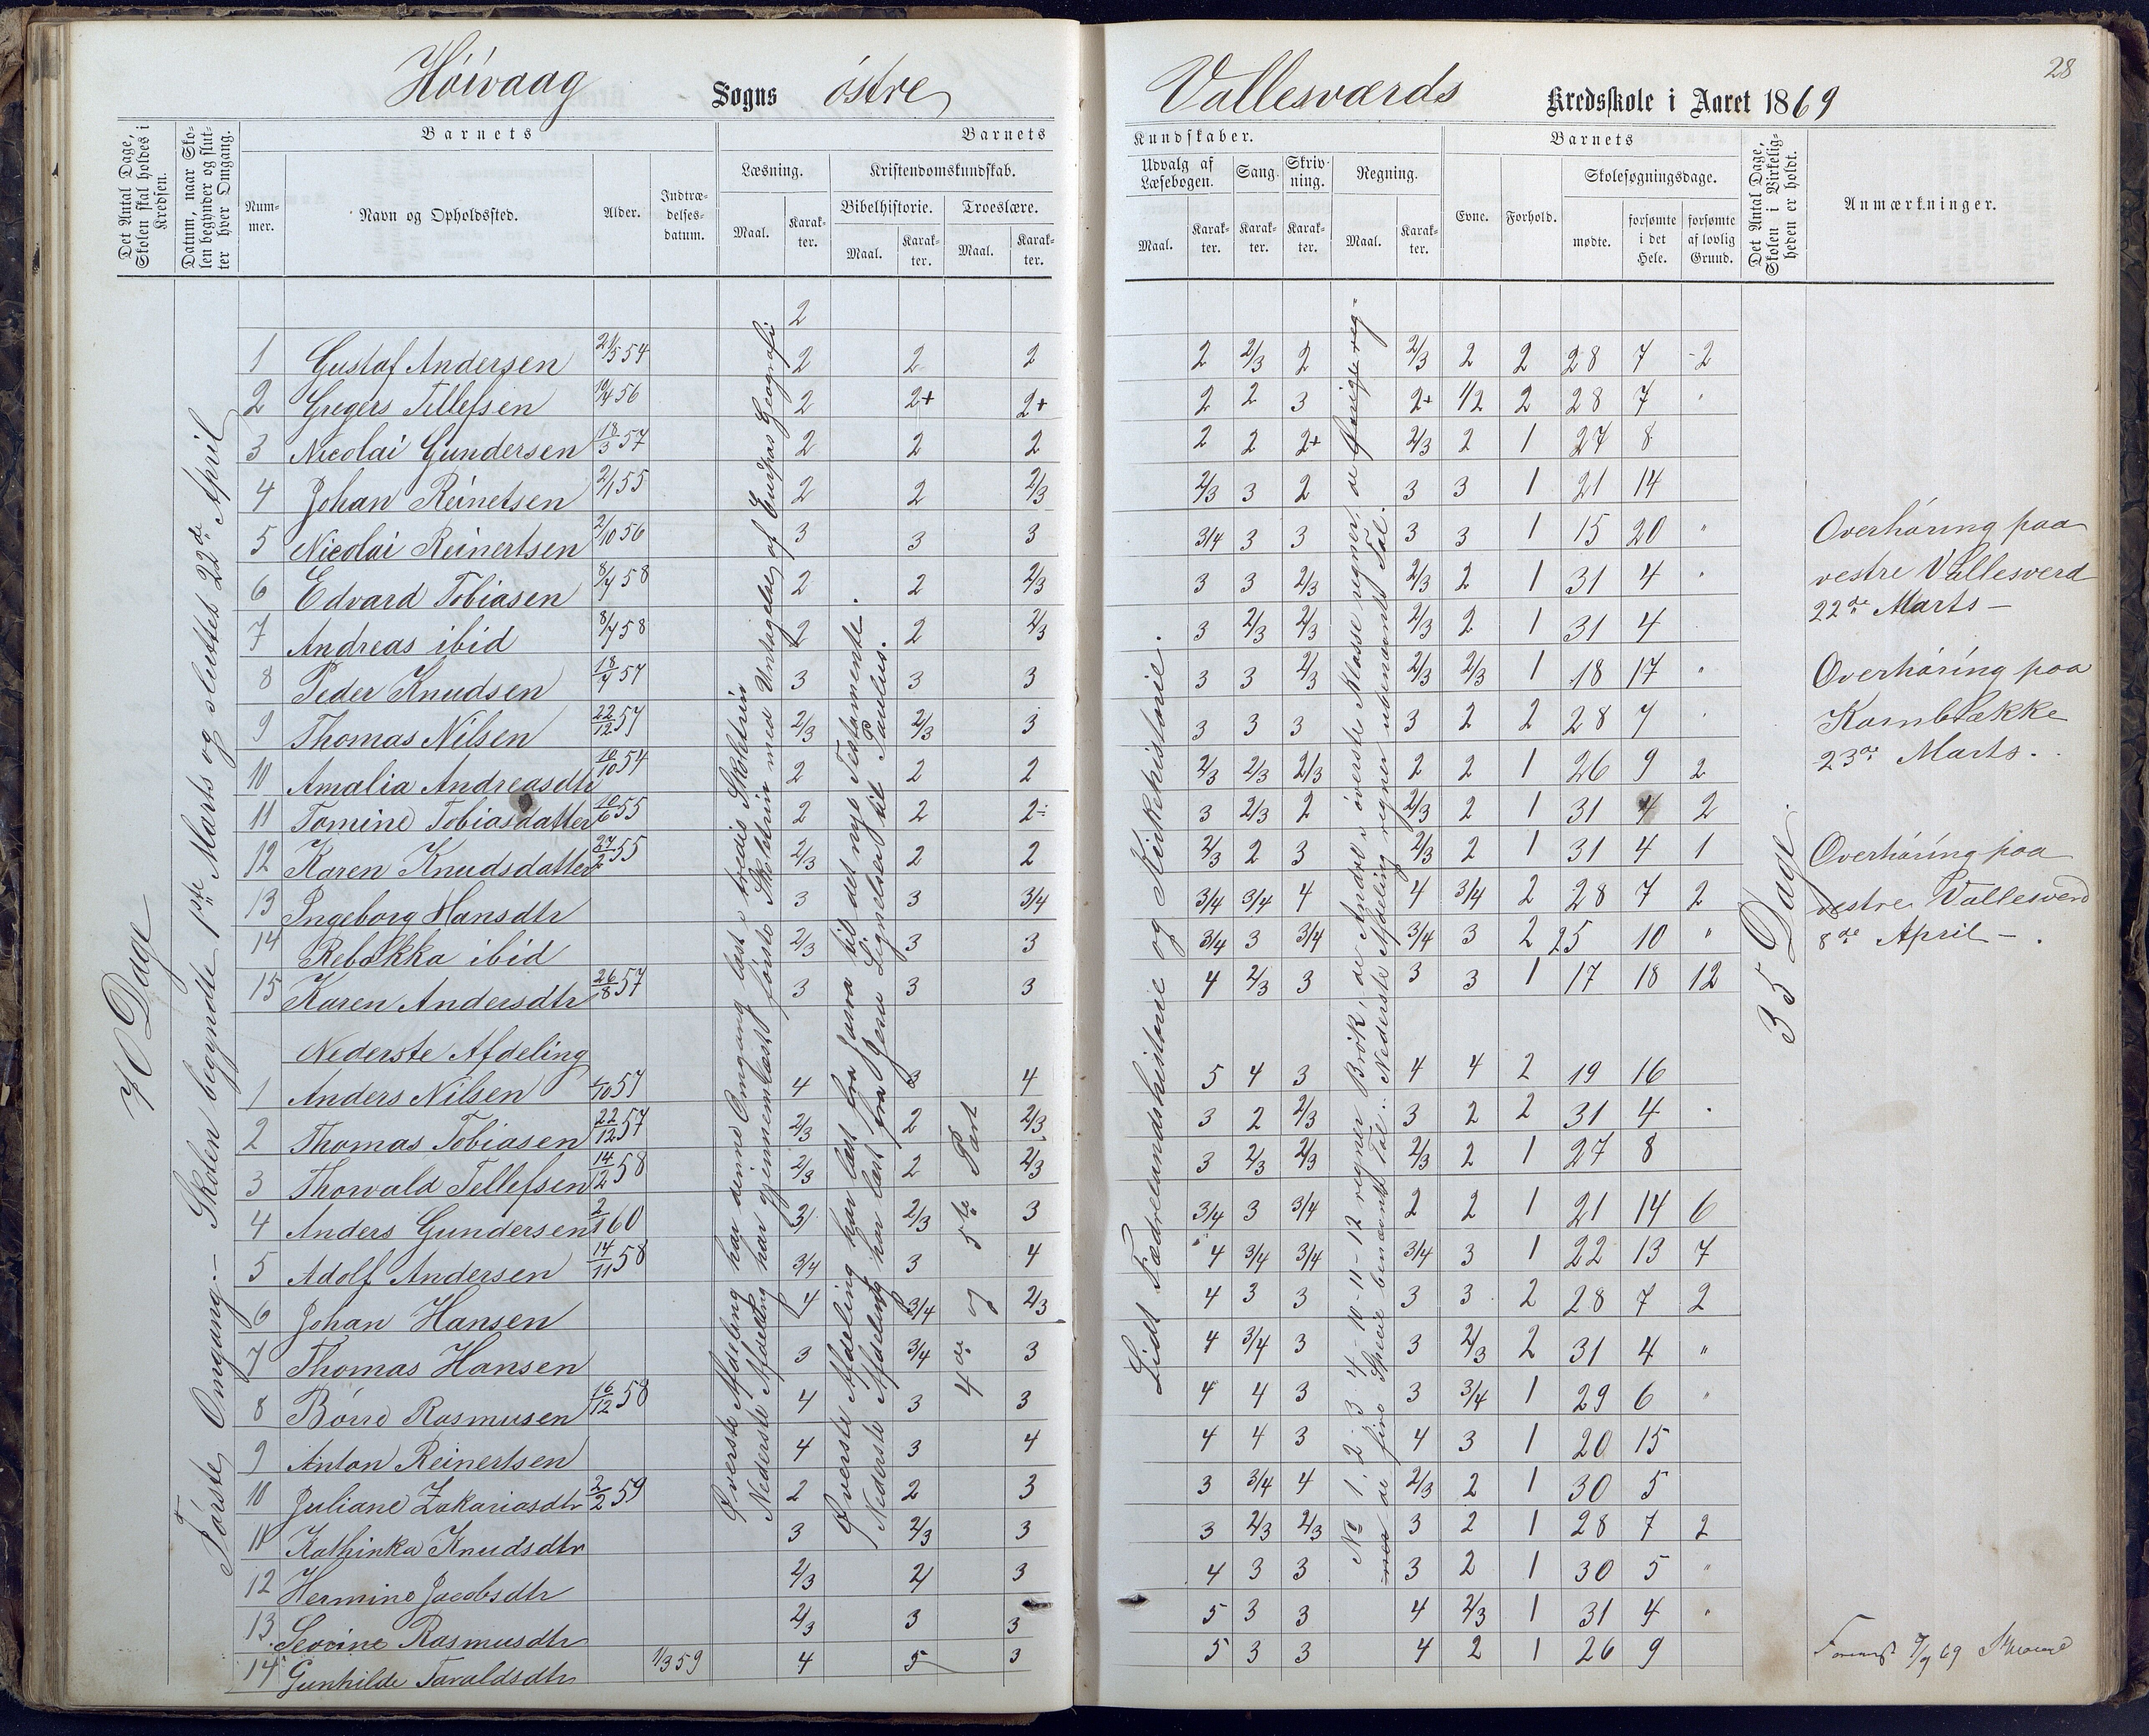 28
Høivaag Sogns østre Vallesværds Kredsskole i Aaret 1869
Det Antal Dage, Skolen skal holdes i Kredsen.
Datum, naar Skolen begynder og slutter hver Omgang.
Barnets
Nummer.
Navn og Opholdssted.
Alder.
Indtrædelsesdatum.
Barnets
Læsning.
Maal.
Karakter.
Kristendomskundskab.
Bibelhistorie.
Maal.
Karakter.
Troeslære.
Maal.
Karakter.
Kundskaber.
Udvalg af Læsebogen.
Maal.
Karakter.
Sang.
Karakter.
Skrivning.
Karakter.
Regning.
Maal.
Karakter.
Barnets
Evne.
Forhold.
Skolesøgningsdage.
mødte.
forsømte i det Hele.
forsømte af lovlig Grund.
Det Antal Dage, Skolen i Virkeligheden er holdt.
Anmærkninger.
2
1 Gustaf Andersen 21/5 54 2 2 2 2 2/3 2 2/3 2 2 28 7 2
2 Gregers Tellefsen 19/4 56 2 2+ 2+ 2 2 3 2+ 1/2 2 28 7 "
3 Nicolai Gundersen 18/3 57 2 2 2 2 2 2+ 2/3 2 1 27 8
4 Johan Reinetsen 2/1 55 2 2 2/3 2/3 3 2 3 3 1 21 14
5 Nicolai Reinertsen 2/10 56 3 3 3 3/4 3 3 3 3 1 15 20 "
6 Edvard Tobiasen 8/4 58 2 2 2/3 3 3 2/3 2/3 2 1 31 4
7 Andreas ibid 8/4 58 2 2 2/3 3 2/3 2/3 2/3 2 1 31 4
8 Peder Knudsen 18/4 57 3 3 3 3 3 2/3 2/3 2/3 1 18 17 "
9 Thomas Nilsen 22/12 57 2/3 2/3 3 3 3 3 3 2 2 28 7
10 Amalia Andreasdtr 10/10 54 2 2 2 2/3 2/3 2/3 2 2 1 26 9 2
11 Tomine Tobiasdatter 10/6 55 2 2 2÷ 3 2/3 2 2/3 2 1 31 4 2
12 Karen Knudsdatter 27/2 55 2/3 2 2 2/3 2 3 2/3 2 1 31 4 1
13 Ingeborg Hansdtr 3 3 3/4 3/4 3/4 4 4 3/4 2 28 7 2
14 Rebekka ibid 2/3 3 3 3/4 3 3/4 3/4 3 2 25 10 "
15 Karen Andersdtr 26/8 57 3 3 3 4 2/3 3 3 3 1 17 18 12
Nederste Afdeling
1 Anders Nilsen /10 57 4 3 4 5 4 3 4 4 2 19 16
2 Thomas Tobiasen 22/12 57 2/3 2 2/3 3 2 2/3 3 2 2 31 4
3 Thorvald Tellefsen 14/12 58 2/3 2 2/3 3 2/3 2/3 2/3 2 1 27 8
4 Anders Gundersen 2/1 60 3/ 2/3 3 3/4 3 3/4 2 2 1 21 14 6
5 Adolf Andersen 14/11 58 3/4 3 4 4 3/4 3/4 3/4 3 1 22 13 7
6 Johan Hansen 4 3/4 2/3 4 3 3 3 3 2 28 7 2
7 Thomas Hansen 3 3/4 3 4 3/4 3 3 2/3 2 31 4 "
8 Børre Rasmusen 16/12 58 4 3 3 4 4 3 3 3/4 1 29 6 "
9 Anton Reinertsen 4 3 4 4 4 3 4 3 1 20 15
10 Juliane Zakariasdtr 2/2 59 2 2 3 3 3/4 4 2/3 2 1 30 5
11 Kathinka Knudsdtr 3 2/3 3 3 2/3 2/3 3 2 1 28 7 2
12 Hermine Jacobsdtr 2/3 2/ 3 4 3 3 3 2 1 30 5 "
13 Severine Rasmusdtr 2/3 3 3 5 3 3 4 2/3 1 31 4 "
14 Gunhilde Taraldsdtr 1/3 59 4 5 3 5 3 3 4 2 1 26 9
70 Dage
Første Omgang. - Skolen begyndte 1ste Marts og sluttet 22de April
Øverste Afdeling har denne Omgang læst i tredie Skoletrin
Nederste Afdeling har gjennemlæst første Skoletrin med Undtagelse af Europas Geografi
Øverste Afdeling har læst fra Josva til det nye Testamente.
Nederste Afdeling har læst fra Jesu Lignelser til Paulus.
4de og 5te Part
Lidt Fædrelandshistorie og Kirkehistorie.
No 1, 2, 3 4-10-11-12 regner Brøk, de Andre i øverste Klasse regner de øvrige reg-
ner de fire Specie benævnt Tal. Nederste Afdeling regner ubenævnt Tal.
35 Dage
Overhøring paa
vestre Vallesverd
22de Marts -
Overhøring paa
Kornbrække
23de Marts.
Overhøring paa
vestre Vallesverd
8de April - .